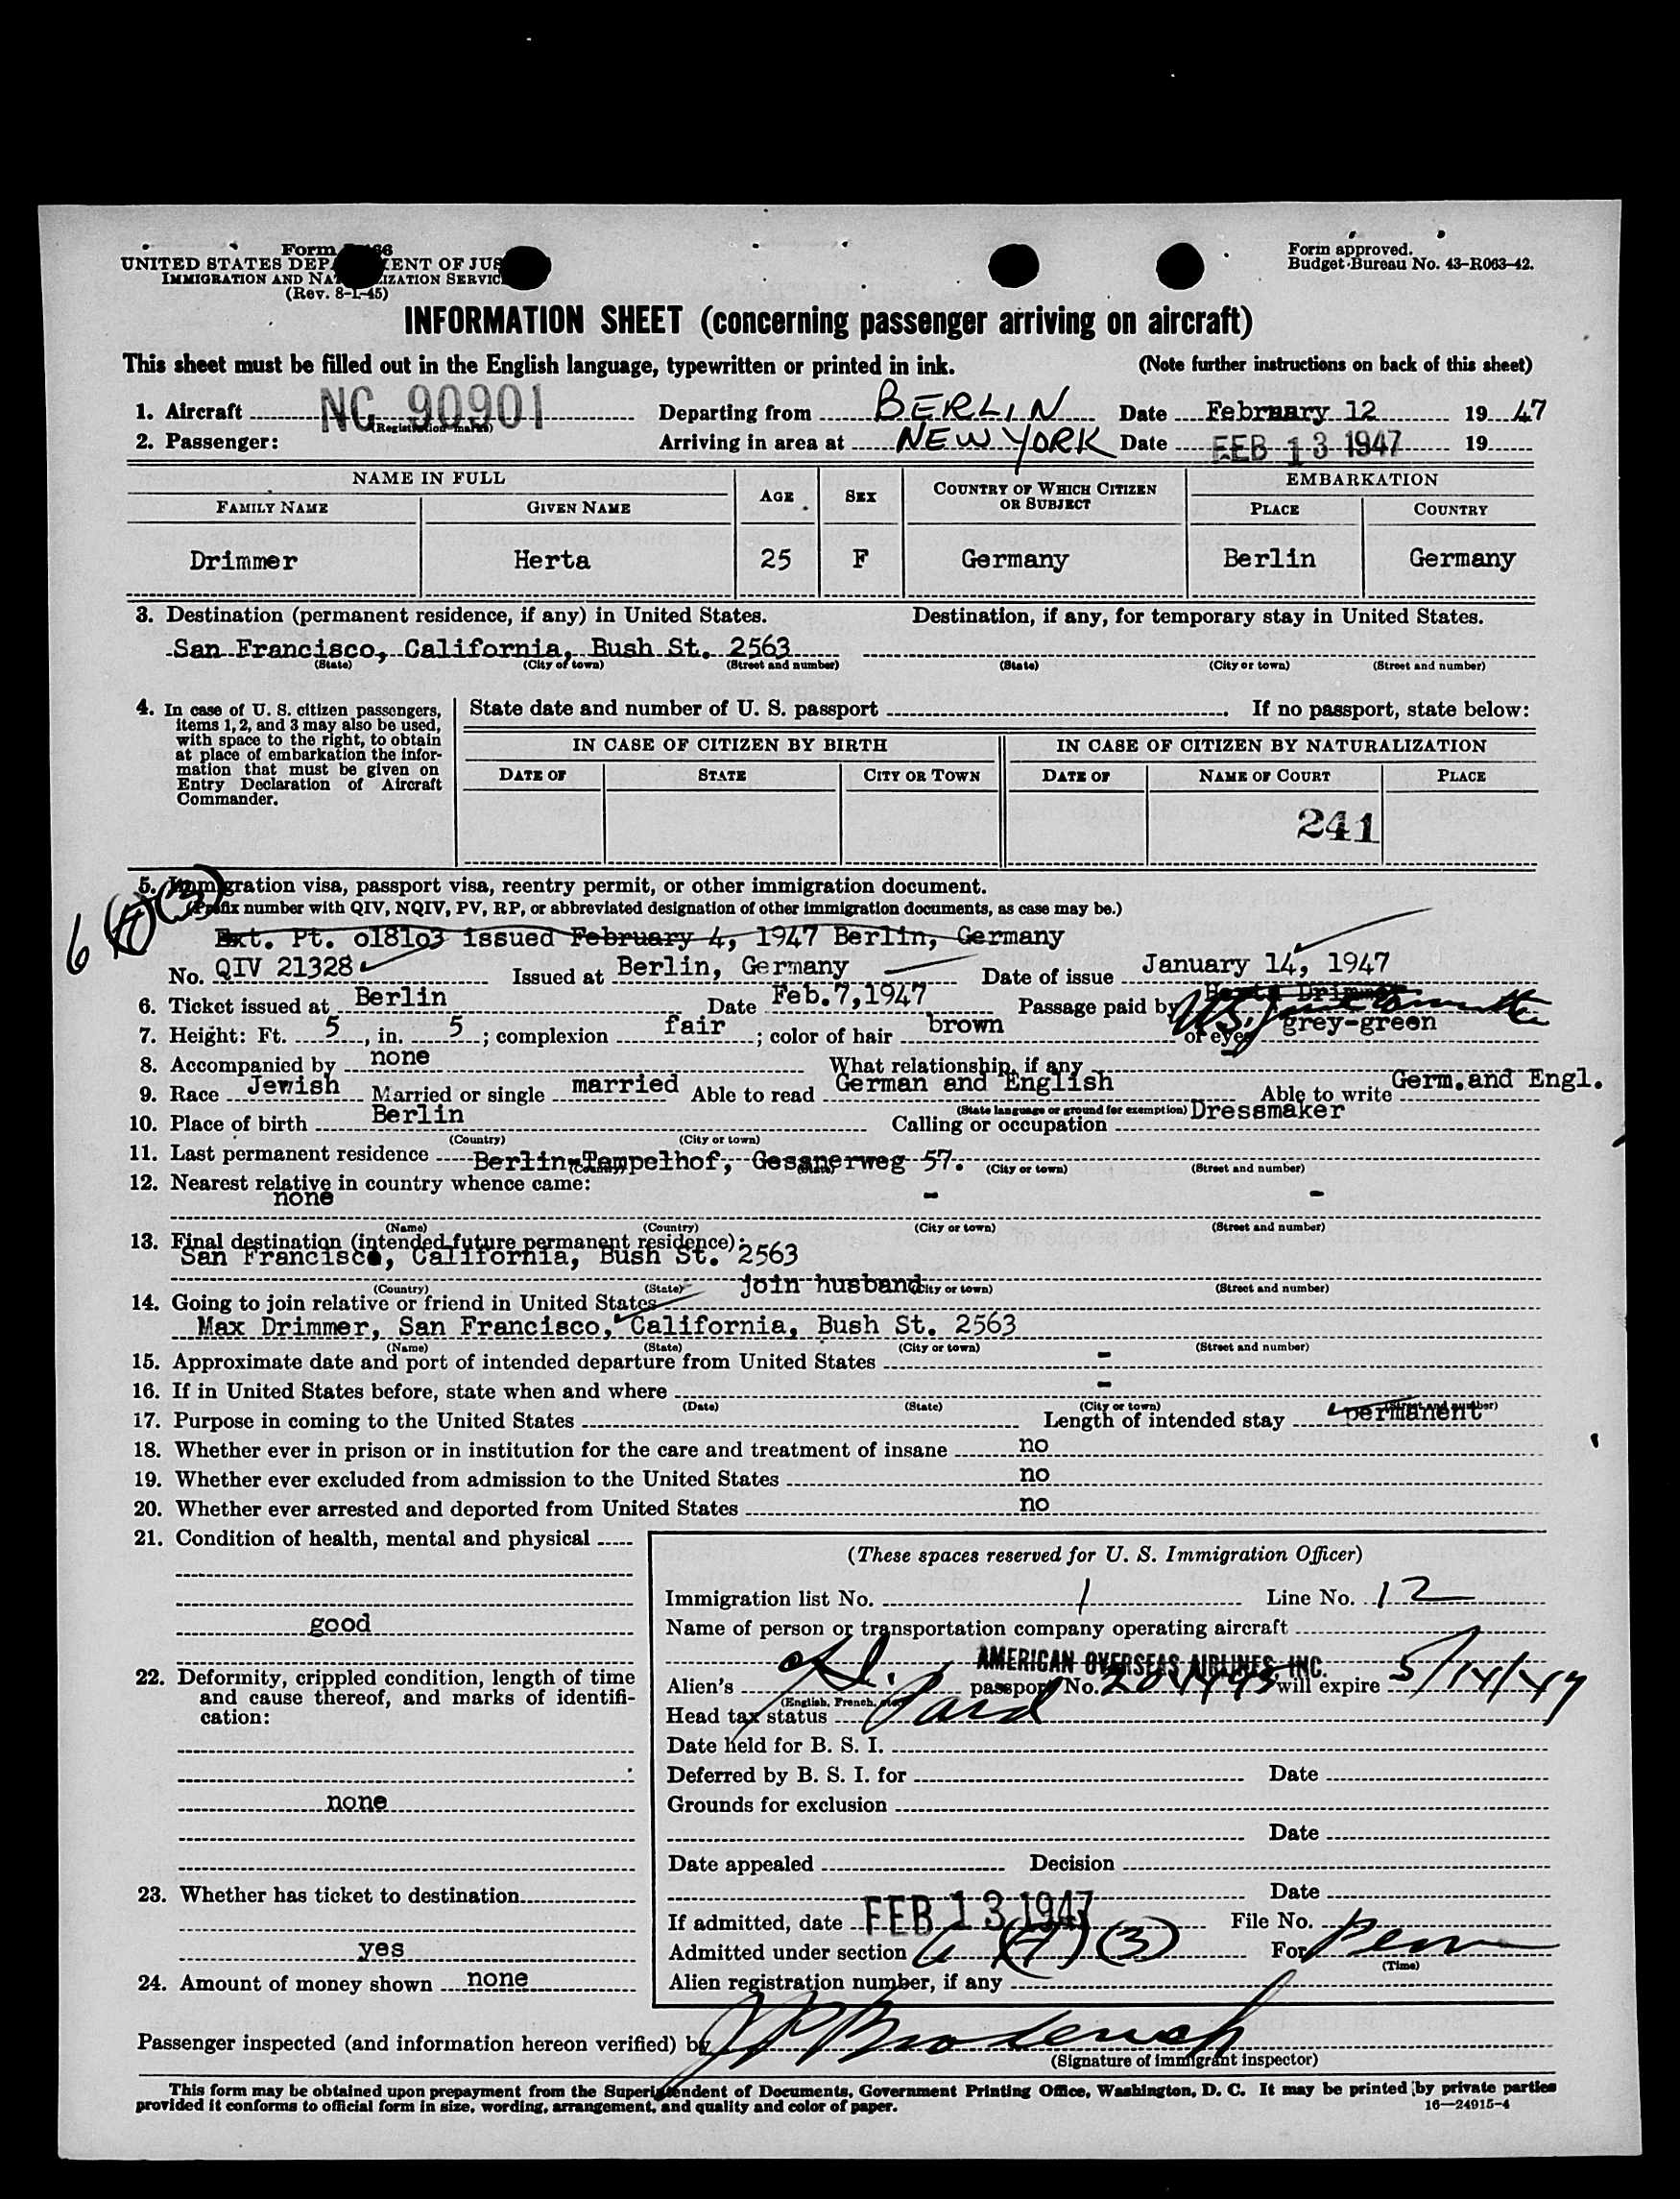 Form
UNITED STATES DEPARTMENT OF JUS
IMMIGRATION AND NATURALIZATION SERVICE
(Rev. 8-1-45)
Form approved.
Budget Bureau No. 43-R063-42.
INFORMATION SHEET (concerning passenger arriving on aircraft)
This sheet must be filled out in the English language, typewritten or printed in ink. (Note further instructions on back of this sheet)
1. Aircraft NC 90901 Departing from BERLIN Date February 12 1947
(Registration marks)
2. Passenger: Arriving in area at NEW YORK Date FEB 13 1947 19
NAME IN FULL AGE SEX COUNTRY OF WHICH CITIZEN OR SUBJECT EMBARKATION
FAMILY NAME GIVEN NAME PLACE COUNTRY
Drimmer Herta 25 F Germany Berlin Germany
3. Destination (permanent residence, if any) in United States. Destination, if any, for temporary stay in United States.
San Francisco, California, Bush St. 2563
(State) (City or town) (Street and number) (State) (City or town) (Street and number)
4. In case of U. S. citizen passengers, items 1, 2, and 3 may also be used, with space to the right, to obtain at place of embarkation the information that must be given on Entry Declaration of Aircraft Commander.
State date and number of U. S. passport If no passport, state below:
IN CASE OF CITIZEN BY BIRTH IN CASE OF CITIZEN BY NATURALIZATION
DATE OF STATE CITY OR TOWN DATE OF NAME OF COURT PLACE
241
5. Immigration visa, passport visa, reentry permit, or other immigration document.
6 (A) (3)
(Prefix number with QIV, NQIV, PV, RP, or abbreviated designation of other immigration documents, as case may be.)
Ext. Pt. o181o3 issued February 4, 1947 Berlin, Germany
No. QIV 21328 Issued at Berlin, Germany Date of issue January 14, 1947
6. Ticket issued at Berlin Date Feb.7,1947 Passage paid by Herta Drimmer
7. Height: Ft. 5, in. 5; complexion fair; color of hair brown of eyes grey-green
8. Accompanied by none What relationship, if any
9. Race Jewish Married or single married Able to read German and English Able to write Germ. and Engl.
(State language or ground for exemption)
10. Place of birth Berlin Calling or occupation Dressmaker
(Country) (City or town)
11. Last permanent residence Berlin-Tempelhof, Gessnerweg 57.
(Country) (State) (City or town) (Street and number)
12. Nearest relative in country whence came:
none - -
(Name) (Country) (City or town) (Street and number)
13. Final destination (intended future permanent residence):
San Francisco, California, Bush St. 2563
(Country) (State) (City or town) (Street and number)
14. Going to join relative or friend in United States join husband
Max Drimmer, San Francisco, California, Bush St. 2563
(Name) (State) (City or town) (Street and number)
15. Approximate date and port of intended departure from United States -
16. If in United States before, state when and where -
(Date) (State) (City or town) (Street and number)
17. Purpose in coming to the United States Length of intended stay permanent
18. Whether ever in prison or in institution for the care and treatment of insane no
19. Whether ever excluded from admission to the United States no
20. Whether ever arrested and deported from United States no
21. Condition of health, mental and physical
good
22. Deformity, crippled condition, length of time and cause thereof, and marks of identification:
none
23. Whether has ticket to destination
yes
24. Amount of money shown none
(These spaces reserved for U. S. Immigration Officer)
Immigration list No. 1 Line No. 12
Name of person or transportation company operating aircraft
AMERICAN OVERSEAS AIRLINES, INC.
Alien's passport No. 204495 will expire 5/14/47
(English, French, etc.)
Head tax status Paid
Date held for B. S. I.
Deferred by B. S. I. for Date
Grounds for exclusion
Date
Date appealed Decision
Date
If admitted, date FEB 13 1947 File No.
Admitted under section 6 (A) (3) For Perm
(Time)
Alien registration number, if any
Passenger inspected (and information hereon verified) by
(Signature of immigrant inspector)
This form may be obtained upon prepayment from the Superintendent of Documents, Government Printing Office, Washington, D. C. It may be printed by private parties
provided it conforms to official form in size, wording, arrangement, and quality and color of paper. 16—24915-4